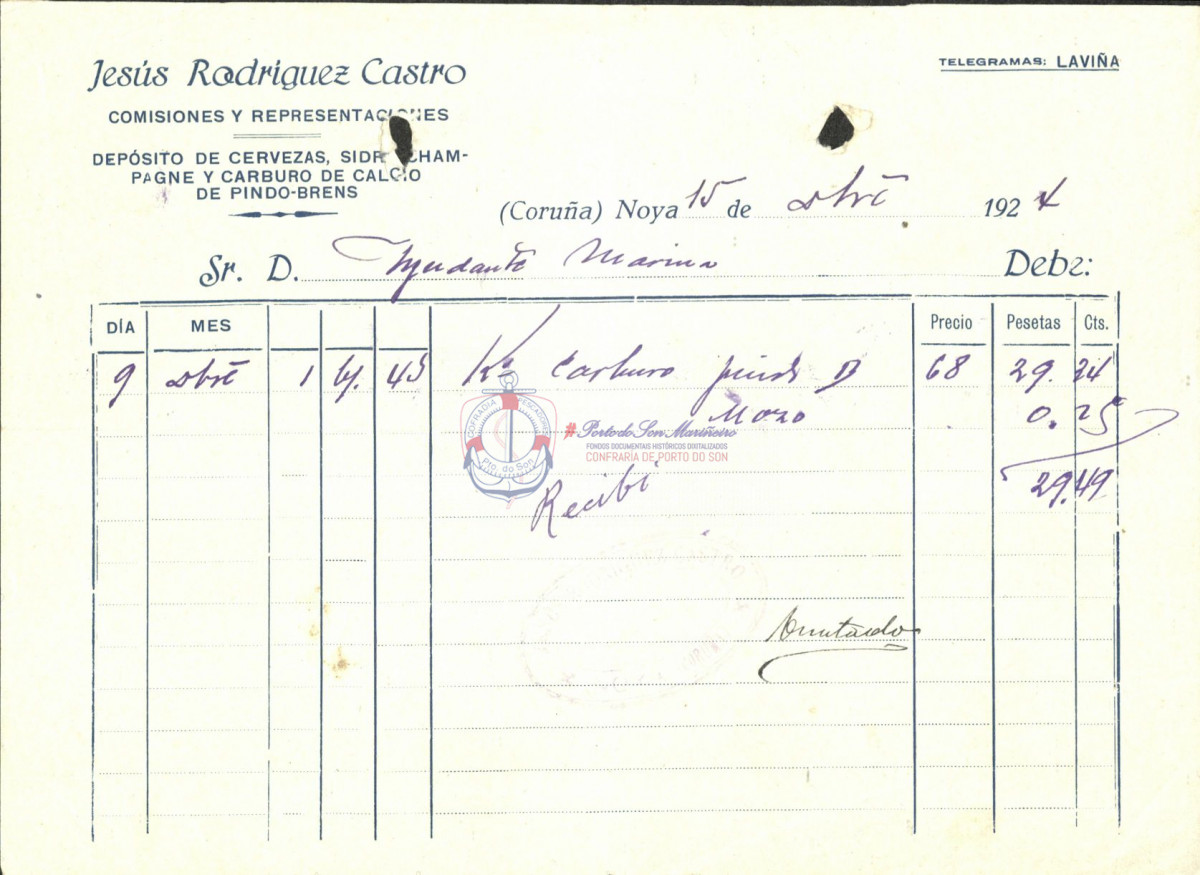 Jesús Rodriguez Castro
TELEGRAMAS: LAVIÑA
COMISIONES Y REPRESENTACIONES
DEPÓSITO DE CERVEZAS, SIDRA CHAM-
PAGNE Y CARBURO DE CALCIO
DE PINDO-BRENS
(Coruña) Noya 15 de dbrē 1924
Sr. D. Ayudante Marina Debe:
DÍA MES Precio Pesetas Cts.
9 dbrē 1 43 Ks Carburo 68 29. 24
Mozo 0. 25
29.49
COFRADIA PESCADORES
Pto. do Son
#Porto do Son Mariñeiro
FONDOS DOCUMENTAIS HISTÓRICOS DIXITALIZADOS
CONFRARÍA DE PORTO DO SON
Recibí
CASTRO